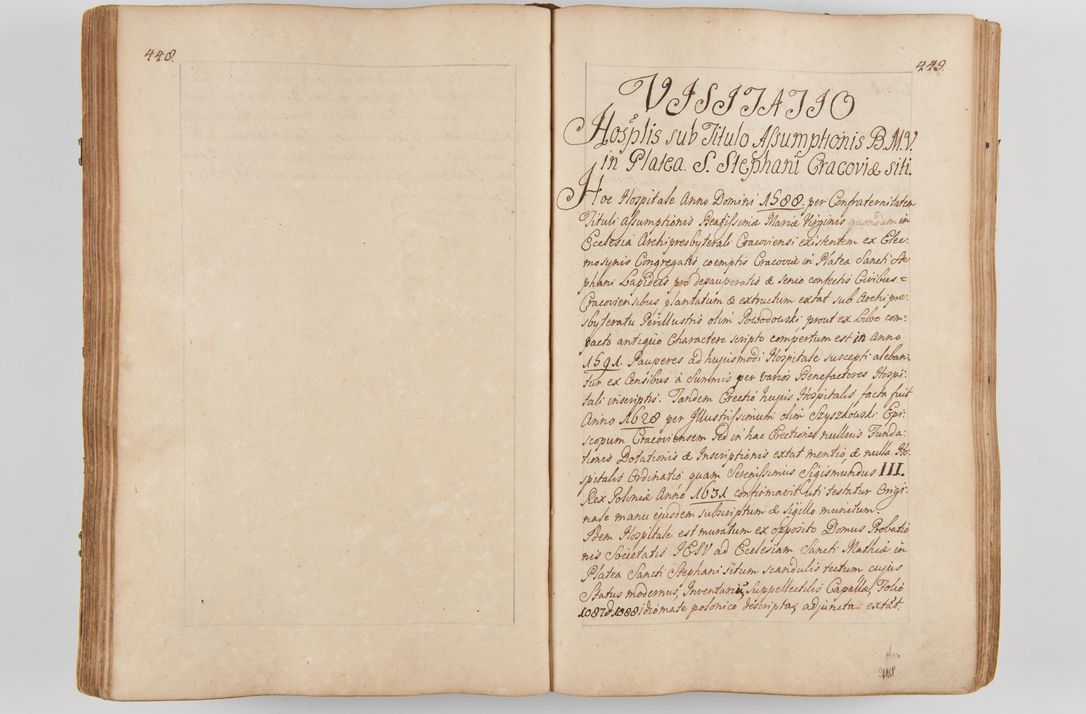 448.
449.
VISITATIO
Hosplis sub Titulo Assumptionis B.M.V.
in Platea S. Stephani Cracoviæ siti.
Hoc Hospitale Anno Domini 1588. per Confraternitatem
Tituli Assumptionis Beatissimæ Mariæ Virginis quondam in
Ecclesia Archipresbyterali Cracoviensi existentem ex Elee-
mosynis Congregatis coemptis Cracoviæ in Platea Sancti Ste
phani Lapideis pro depauperatis & senio confectis Civibus =
Cracoviensibus plantatum & extructum extat sub Archipre-
sbyteratu Perillustris olim Powodowski prout ex Libro com-
pacto antiquo Charactere scripto compertum est in anno
1591. Pauperes ad hujusmodi Hospitale suscepti aleban-
tur ex Censibus à Summis per varios Benefactores Hospi-
tali inscriptis. Tandem Erectio hujus Hospitalis facta fuit
Anno 1628 per Illustrissimum olim Szyszkowski Epi-
scopum Cracoviensem sed in hac Erectione nulluis Funda-
tionis Dotationis & Inscriptionis extat mentio, & nulla Ho-
spitalis Ordinatio quam Serenissimus Sigismundus III.
Rex Poloniæ Anno 1631 confirmavit uti testatur Origi-
nale manu ejusdem subscriptum & sigillo munitum.
Idem Hospitale est muratum ex opposito Domus Probatio
nis Societatis IESV ad Ecclesiam Sancti Mathiæ in
Platea Sancti Stephani situm scandulis tectum cujus
Status modernus, Inventaria, Suppellectilis Capellæ, Folio
1087 & 1088 idiomate polonico descripta, adjuncta extat.